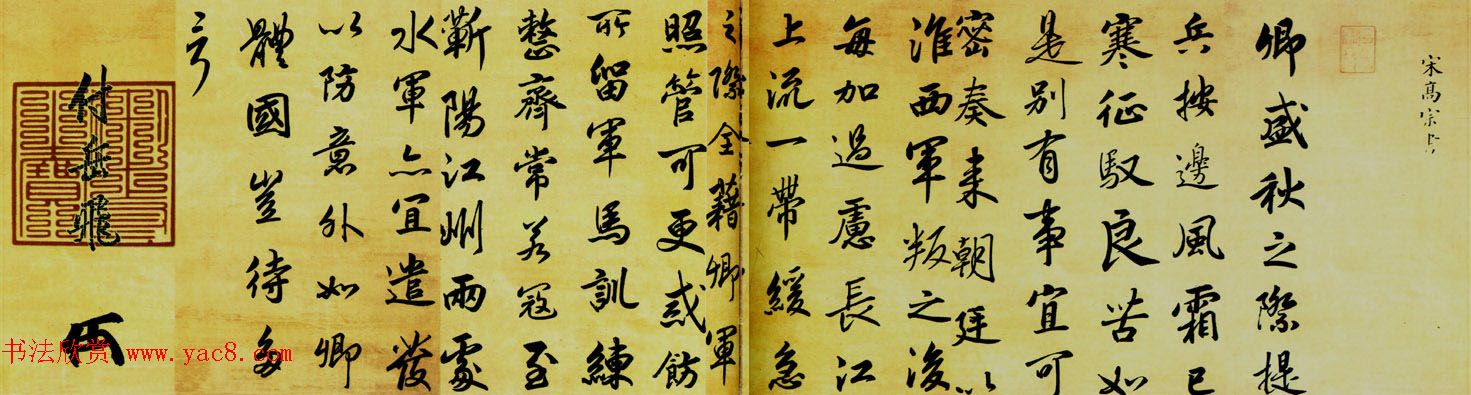 宋高宗書
卿盛秋之際提
兵按邊風霜已
寒征馭良苦如
是別有事宜可
密奏來朝廷以
淮西軍叛之後
每加過慮長江
上流一帶緩急
之際全藉卿軍
照管可更戒飭
所留軍馬訓練
整齊常若寇至
蘄陽江州兩處
水軍亦宜遣發
以防意外如卿
體國豈待多
言
付岳飛
书法欣赏 www.yac8.com